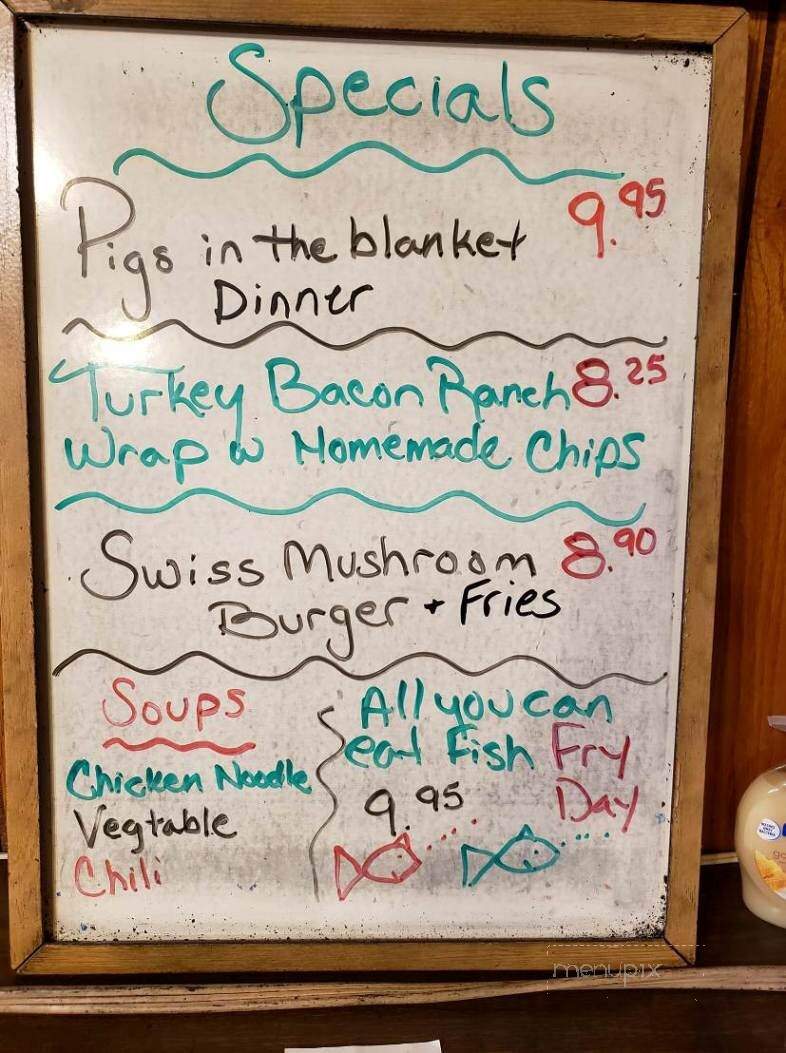 Specials
Pigs in the blanket 9.95
Dinner
Turkey Bacon Ranch 8.25
Wrap w Homemade Chips
Swiss Mushroom 8.90
Burger + Fries
Soups
Chicken Noodle
Vegtable
Chili
All you can
eat Fish Fry
9.95 Day
menupix